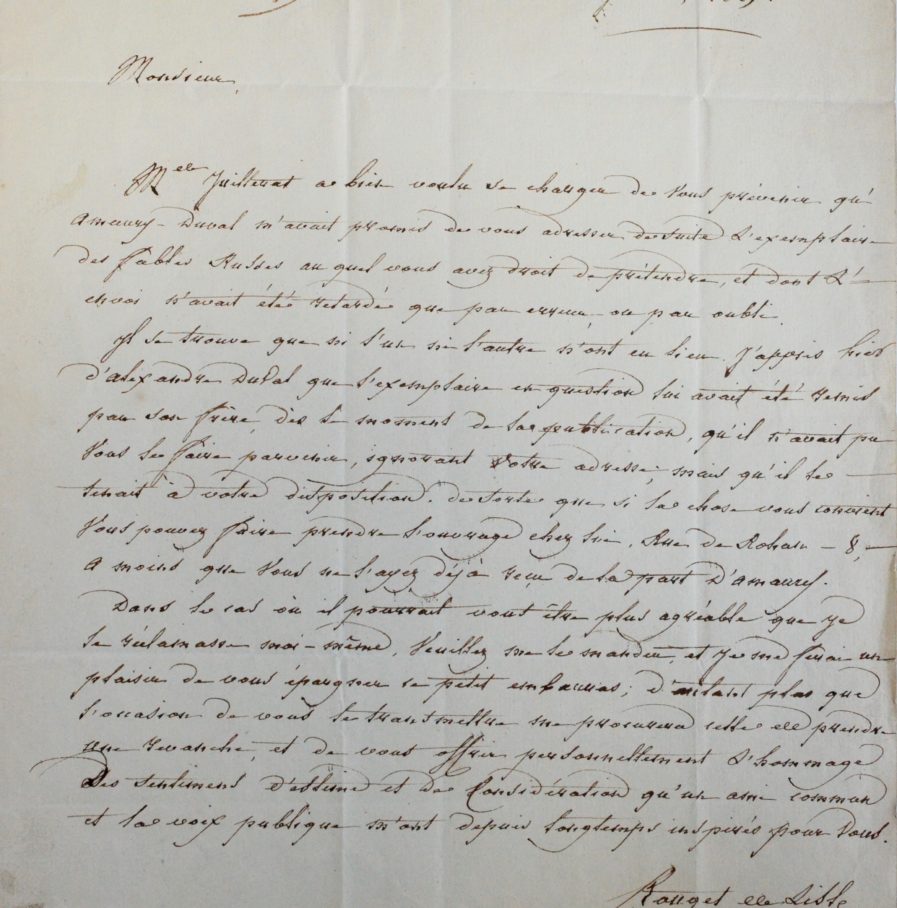 Monsieur,
Melle Juillerat a bien voulu se charger de vous prévenir qu'
Amaury-Duval m'avait promis de vous adresser de suite l'exemplaire
des fables Russes auquel vous avez droit de prétendre, et dont l'-
envoi n'avait été retardé que par erreur ou par oubli.
Il se trouve que ni l'un ni l'autre n'ont eu lieu. J'appris hier
d'Alexandre Duval que l'exemplaire en question lui avait été remis
par son frère, dès le moment de la publication, qu'il n'avait pu
vous le faire parvenir, ignorant votre adresse; mais qu'il le
tenait à votre disposition. de sorte que si la chose vous convient
vous pouvez faire prendre l'ouvrage chez lui, Rue de Rohan - 8, -
a moins que vous ne l'ayez déjà reçu de la part d'Amaury.
Dans le cas où il pourrait vous être plus agréable que je
le réclamasse moi-même, veuillez me le mander, et je me ferai un
plaisir de vous épargner ce petit embarras; d'autant plus que
l'occasion de vous le transmettre me procurera celle de prendre
une revanche, et de vous offrir personnellement l'hommage
des sentiments d'estime et de considération qu'un ami commun
et la voix publique m'ont depuis longtemps inspirés pour vous.
Rouget de Lisle